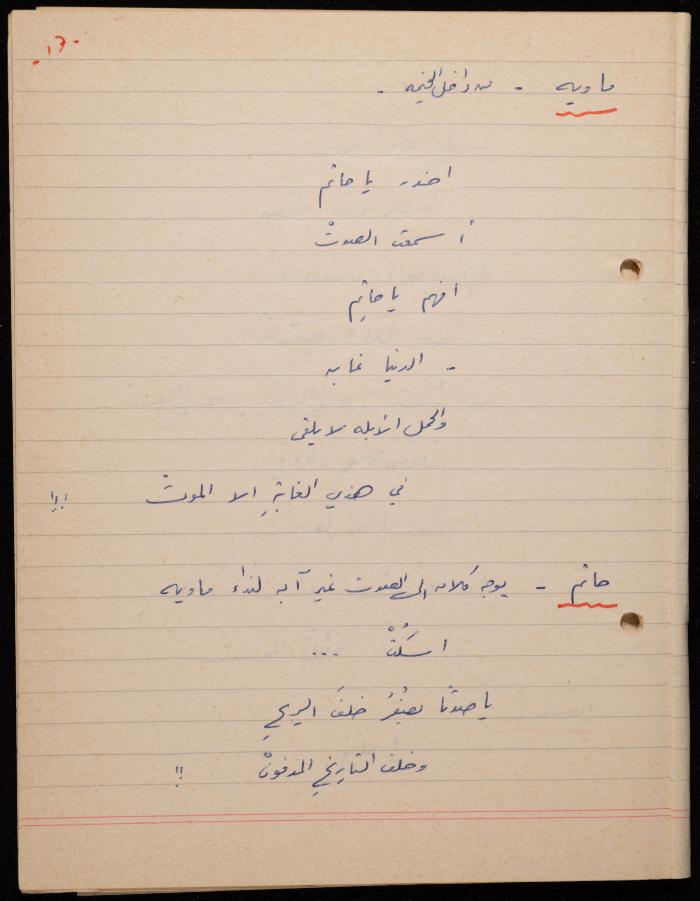 -١٦-
ماويه - من داخل الخيمه -
احذر يا حاتم
أسمعت الصوتْ
افهم يا حاتِم
- الدنيا غابه
والحمل الأبله لا يلقى
في هذي الغابةِ الا الموتْ !!
حاتم - يوجه كلامه إلى الصوت غير آبه لنداء ماويه
اسكُتْ ...
يا صوتًا يصفِرُ خلفَ الريحِ
وخلف التاريخِ المدفونْ !!